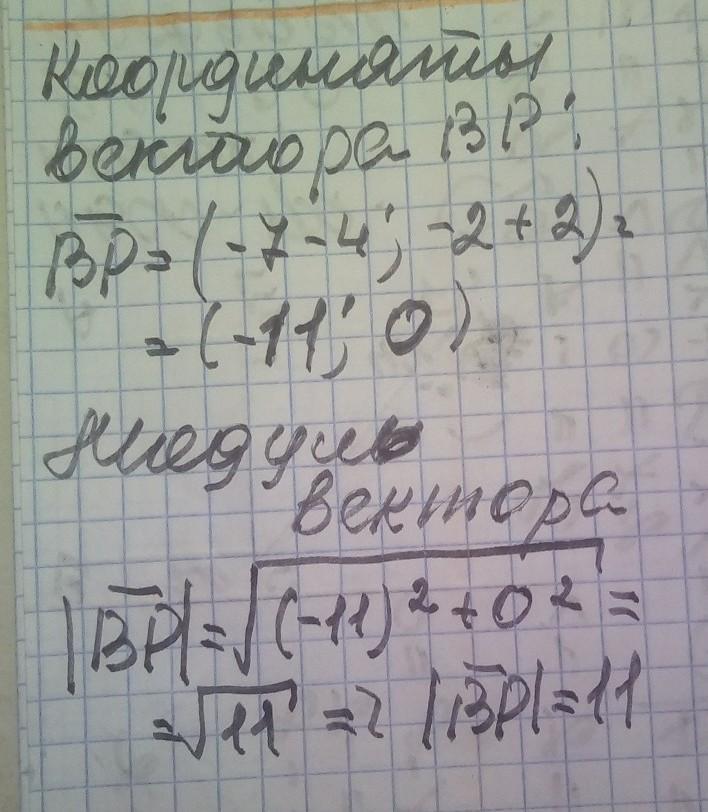 Координаты
вектора BP:
BP = (-7-4; -2+2) =
= (-11; 0)
Модуль
вектора
|BP| = √(-11)² + 0² =
= √11 => |BP| = 11